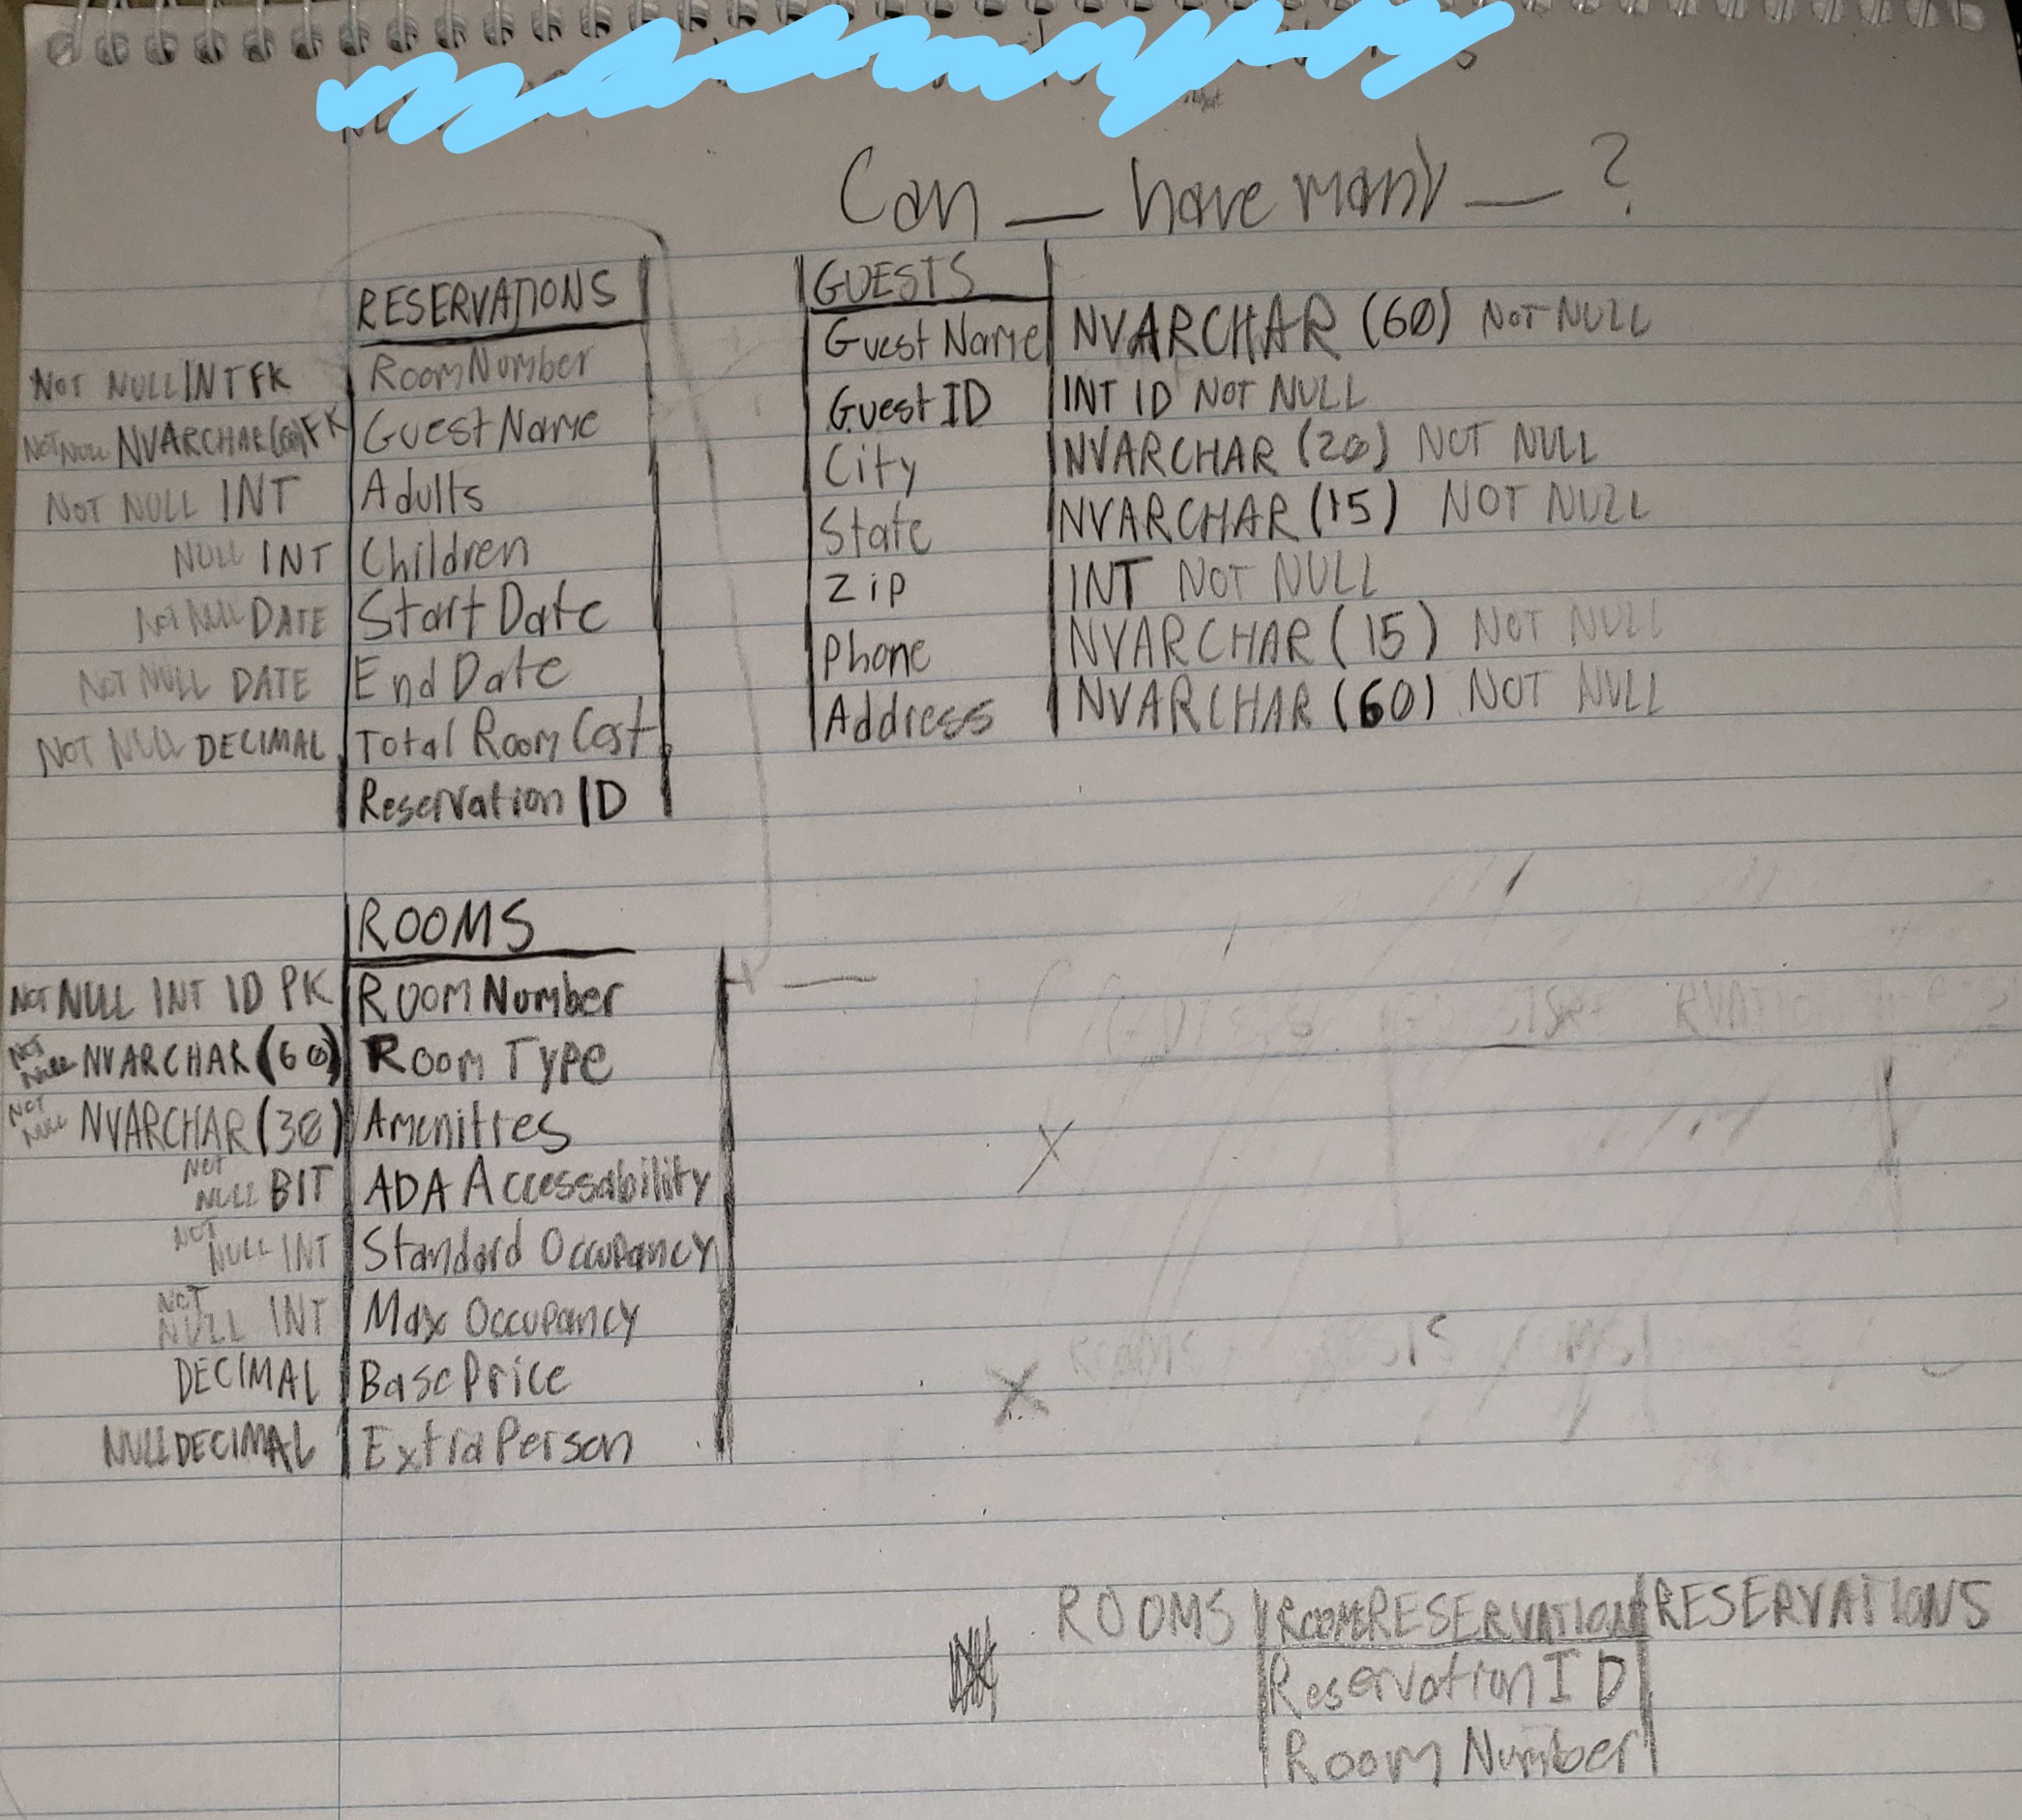 Can __ have many __ ?
RESERVATIONS
NOT NULL INT FK RoomNumber
NOT NULL NVARCHAR(60) FK GuestName
NOT NULL INT Adults
NULL INT Children
NOT NULL DATE Start Date
NOT NULL DATE End Date
NOT NULL DECIMAL Total Room Cost
Reservation ID
GUESTS
Guest Name NVARCHAR (60) NOT NULL
Guest ID INT ID NOT NULL
City NVARCHAR (20) NOT NULL
State NVARCHAR (15) NOT NULL
Zip INT NOT NULL
Phone NVARCHAR (15) NOT NULL
Address NVARCHAR (60) NOT NULL
ROOMS
NOT NULL INT ID PK Room Number
NOT NULL NVARCHAR (60) Room Type
NOT NULL NVARCHAR (30) Amenities
NOT NULL BIT ADA Accessability
NOT NULL INT Standard Occupancy
NOT NULL INT Max Occupancy
DECIMAL Base Price
NULL DECIMAL Extra Person
ROOMS ROOMRESERVATION RESERVATIONS
Reservation ID
Room Number